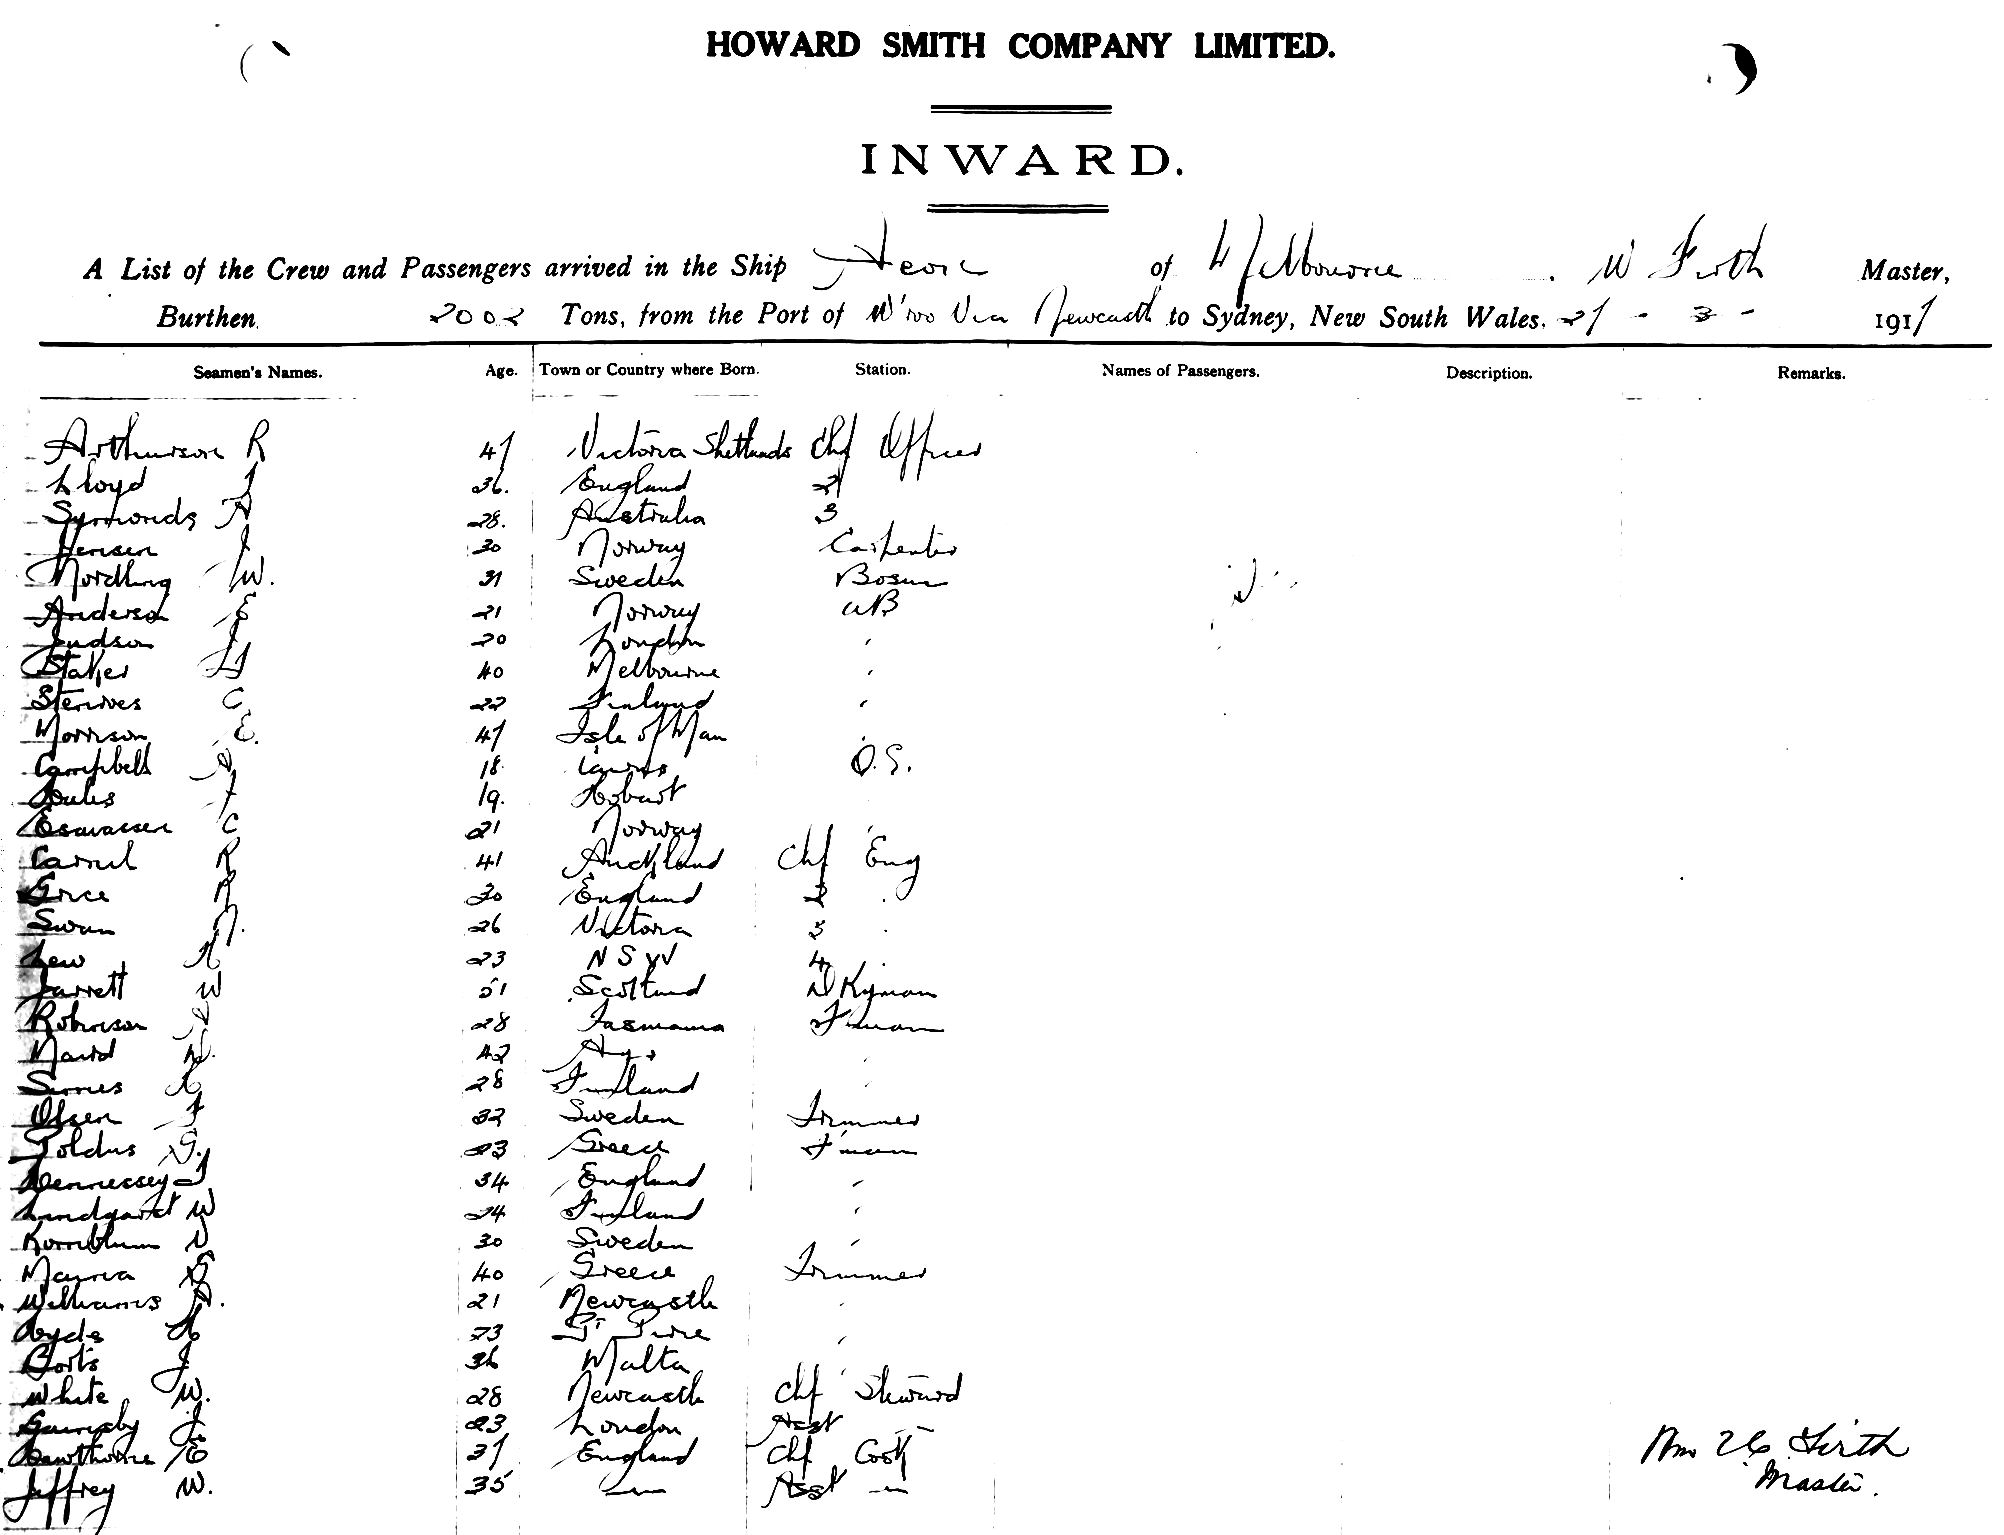 HOWARD SMITH COMPANY LIMITED.
INWARD.
A List of the Crew and Passengers arrived in the Ship of Melbourne W Firth Master,
Burthen 2002 Tons, from the Port of W'oo Via Newcastle to Sydney, New South Wales. 21 - 3 - 1917
Seamen's Names. Age. Town or Country where Born. Station. Names of Passengers. Description. Remarks.
Arthurson R 47 Victoria Shetlands Chf Officer
Lloyd J 36. England 2
Symonds A 28. Australia 3
Jensen J 30 Norway Carpenter
Nordling W. 31 Sweden Bosun
Anderson E 21 Norway AB
Judson J 20 London "
Staker H 40 Melbourne "
C 22 Finland "
Morrison E. 47 Isle of Man "
Campbell A 18 Cairns O.S.
19. Hobart
C 21 Norway
R 41 Auckland Chf Eng
Grice R 30 England 2 "
Swan 26 Victoria 3 "
Lew A 23 NSW 4 "
Jarrett W 51 Scotland DKyman
Robinson 28 Tasmania F'man
42 Ayr "
28 Finland "
Olsen F 32 Sweden Trimmer
Poldus G. 23 Greece F'man
Hennessey J 34 England "
Lindgard W 24 Finland "
Kornblum 30 Sweden "
40 Greece Trimmer
Williams A. 21 Newcastle "
Hyde A 23 "
J 36 Malta "
White W. 28 Newcastle Chf Steward
J 23 London Asst "
Hawthorne E 37 England Chf Cook
Jeffrey W. 35 " Asst "
Wm Firth
Master.